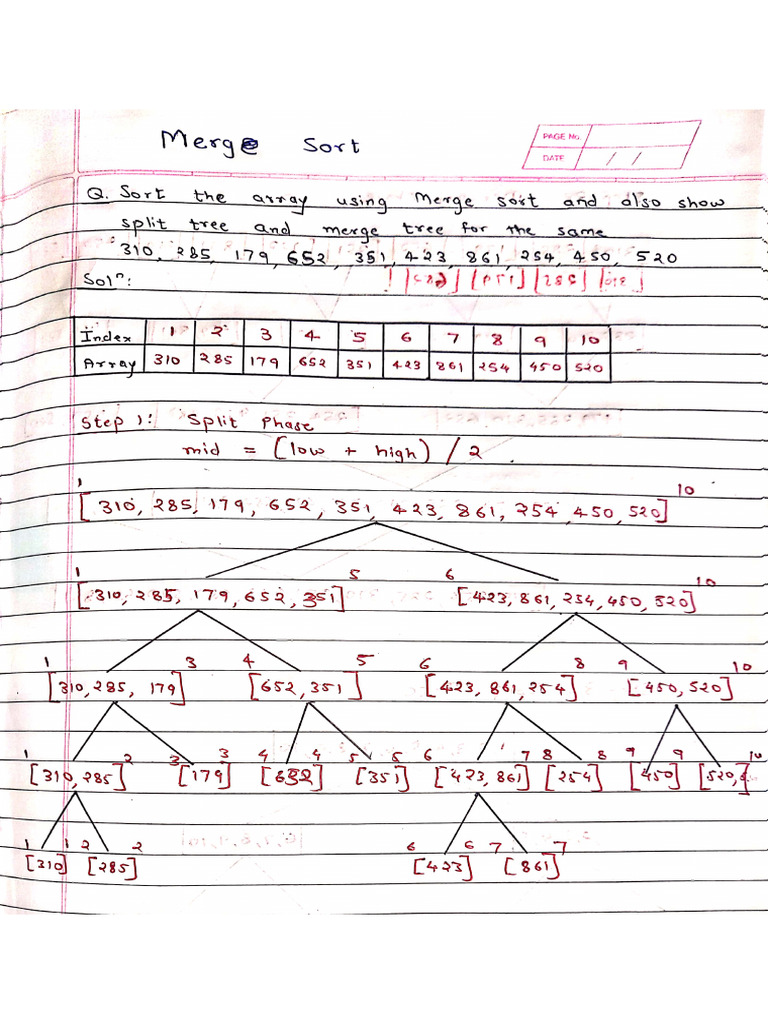 Merge Sort
PAGE No.
DATE / /
Q. Sort the array using Merge sort and also show
split tree and merge tree for the same
310, 285, 179, 652, 351, 423, 861, 254, 450, 520
Solⁿ:
Index 1 2 3 4 5 6 7 8 9 10
Array 310 285 179 652 351 423 861 254 450 520
Step 1: Split Phase
mid = (low + high) / 2.
1 10
[310, 285, 179, 652, 351, 423, 861, 254, 450, 520]
1 5 6 10
[310, 285, 179, 652, 351] [423, 861, 254, 450, 520]
1 3 4 5 6 8 9 10
[310, 285, 179] [652, 351] [423, 861, 254] [450, 520]
1 2 3 3 4 4 5 5 6 7 8 8 9 9 10
[310, 285] [179] [652] [351] [423, 861] [254] [450] [520,
1 1 2 2 6 6 7 7
[310] [285] [423] [861]